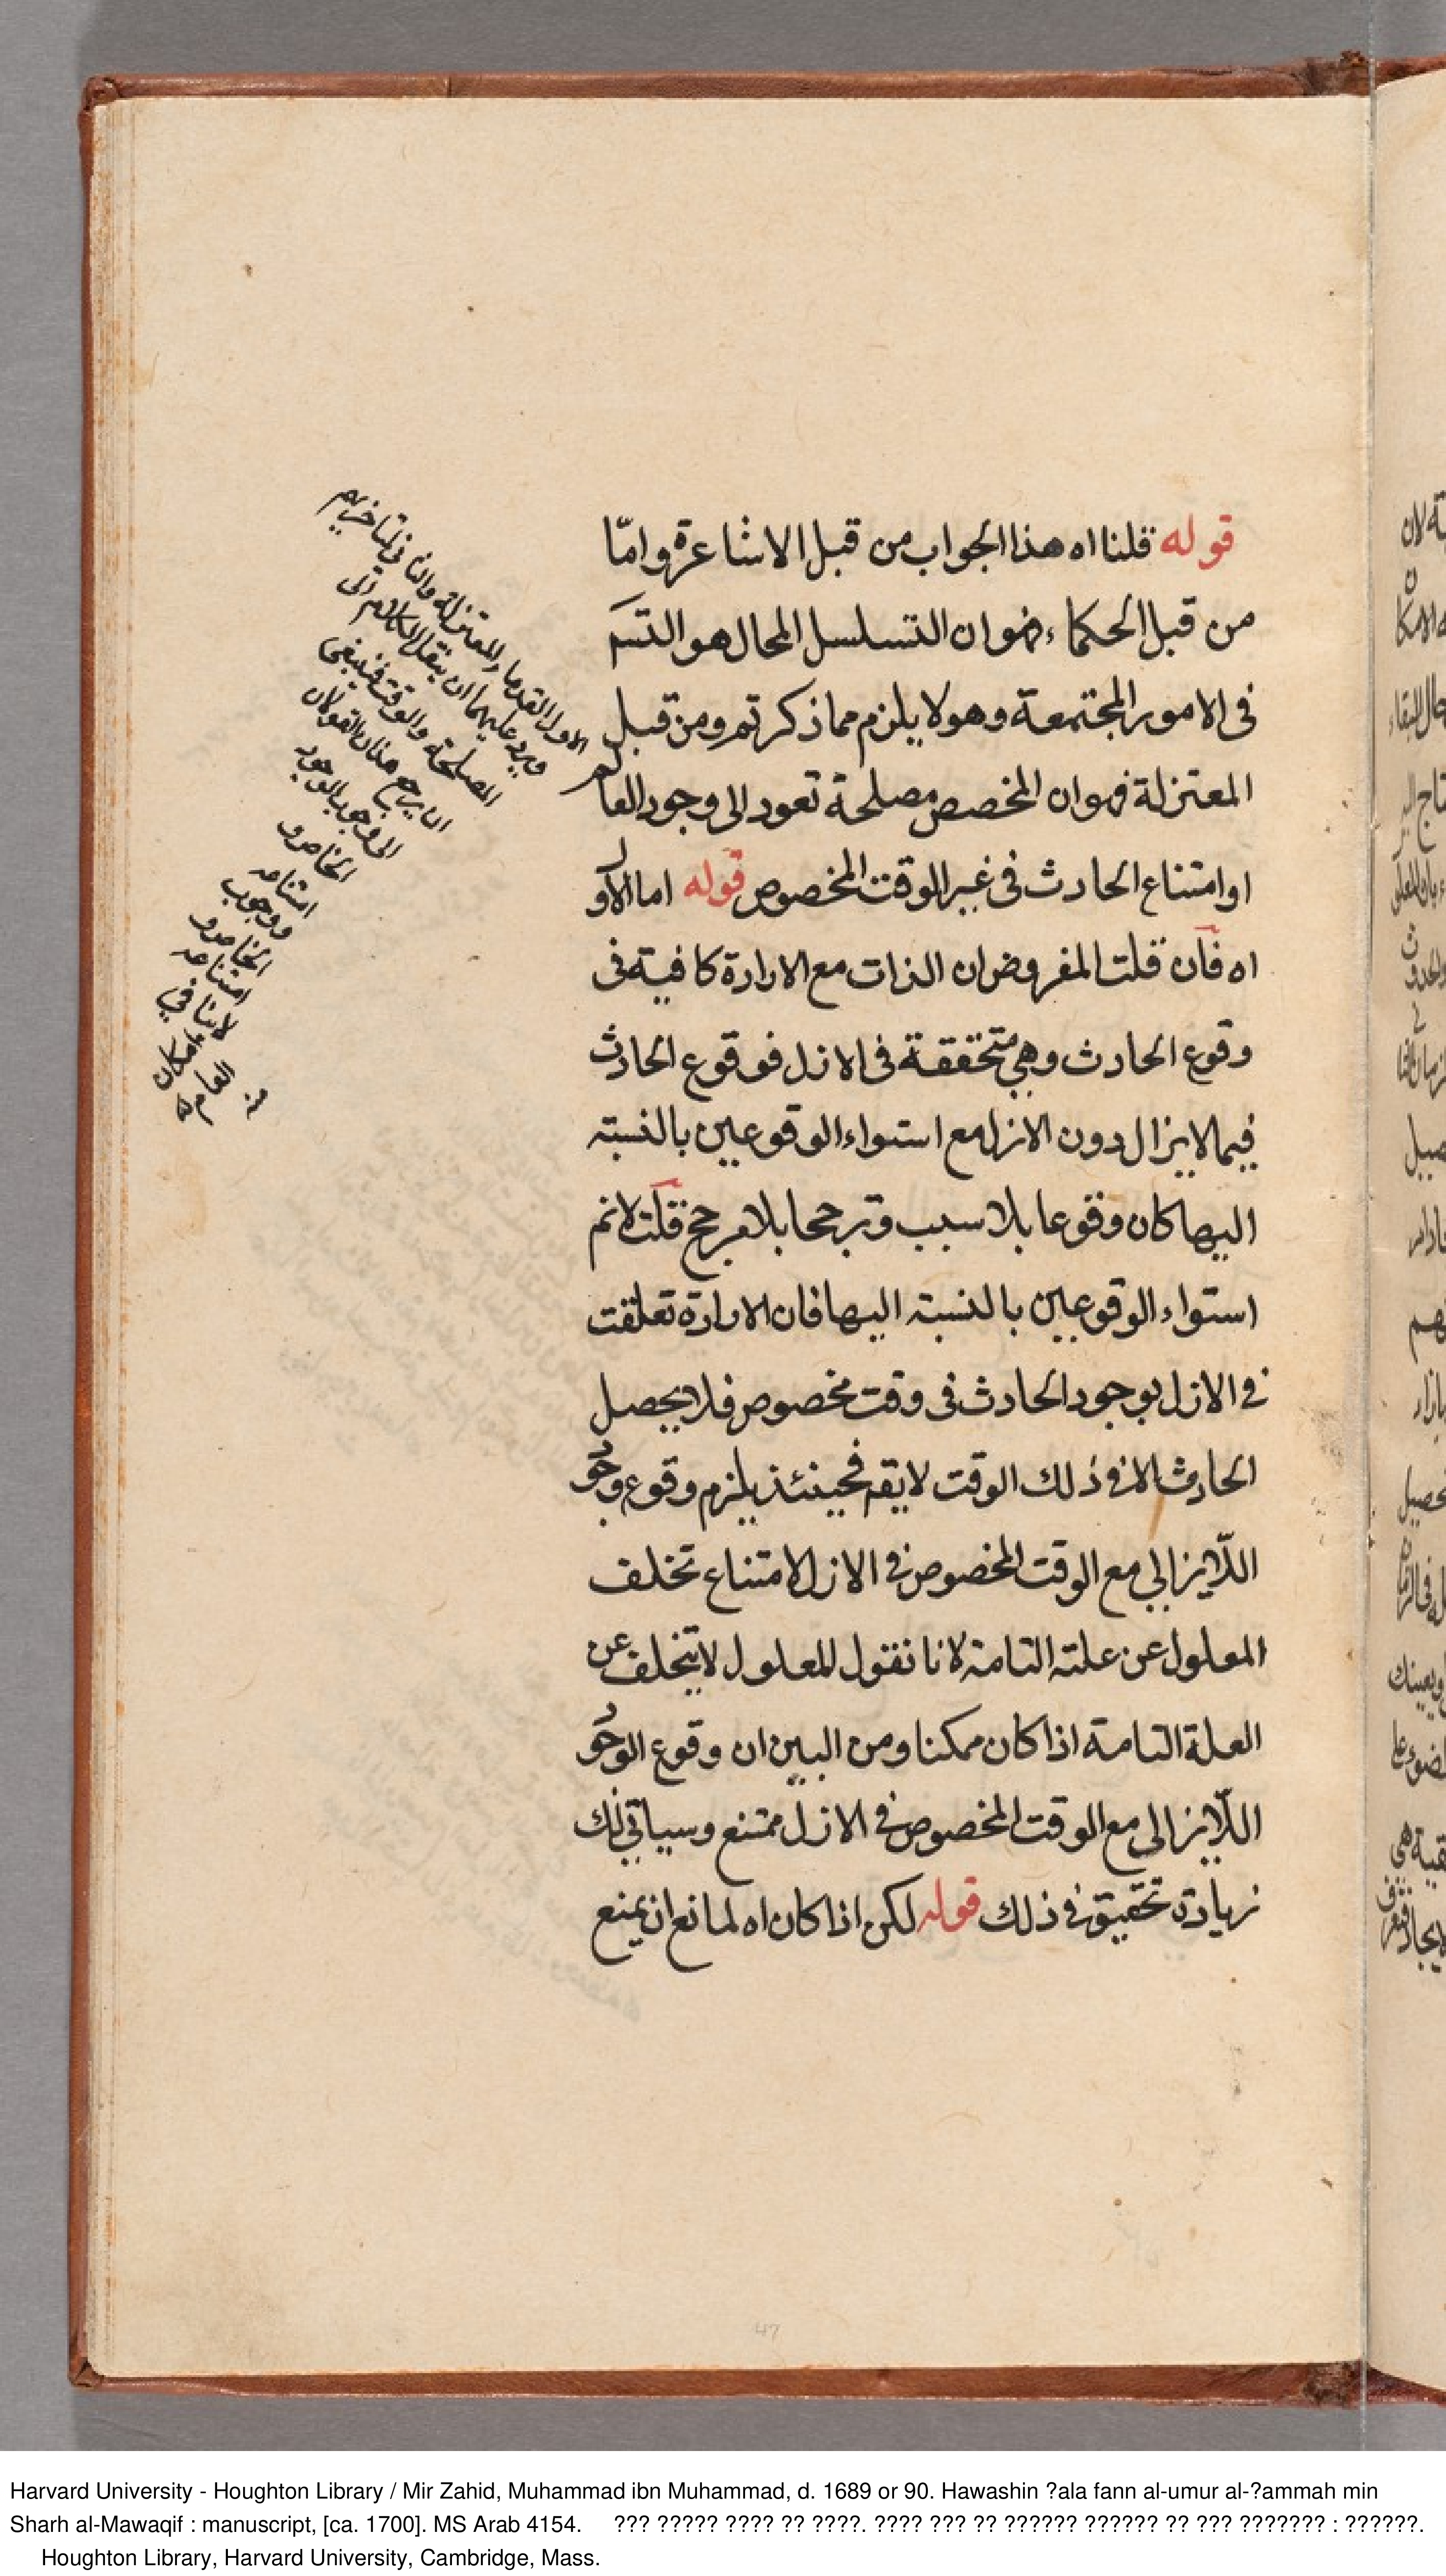 قوله قلنا اه هذا الجواب من قبل الاشاعرة وامّا
من قبل الحكماء فهو ان التسلسل المحال هو التسـ
فى الامور المجتمعة وهو لا يلزم مما ذكرتم ومن قبل
المعتزلة فهو ان المخصص مصلحة تعود الى وجود العالم
او امتناع الحادث فى غير الوقت المخصوص قوله اما الاول
اه فان قلت المفروض ان الذات مع الارادة كافية فى
وقوع الحادث وهي متحققة فى الازل فوقوع الحادث
فيما لا يزال دون الازل مع استواء الوقوعين بالنسبة
اليها كان وقوعا بلا سبب وترجحا بلا مرجح قلت لانم
استواء الوقوعين بالنسبة اليها فان الارادة تعلقت
في الازل بوجود الحادث فى وقت مخصوص فلا يحصل
الحادث الا في ذلك الوقت لا يقم فحينئذ يلزم وقوع وجود
اللّايزالي مع الوقت المخصوص في الازل لامتناع تخلف
المعلول عن علته التامة لانا نقول المعلول لا يتخلف عن
العلة التامة اذا كان ممكنا ومن البين ان وقوع الوجود
اللّايزالى مع الوقت المخصوص في الازل ممتنع وسياتي لك
زيادة تحقيق في ذلك قوله لكن اذا كان اه لمانع ان يمنع
الاول القدماء المعتزلة والثاني لمتاخريهم
ويرد عليهما ان ينقل الكلام الى
المصلحة والوقت فينبغى
ان يرجع هذان القولان
الى وجوب الوجود
الخاص و
امتناعه
ووجوب
الخاص و
امتناعه
لا ينافي
امكان
العام
منه
47
Harvard University - Houghton Library / Mir Zahid, Muhammad ibn Muhammad, d. 1689 or 90. Hawashin ?ala fann al-umur al-?ammah min
Sharh al-Mawaqif : manuscript, [ca. 1700]. MS Arab 4154. ??? ????? ???? ?? ????. ???? ??? ?? ?????? ?????? ?? ??? ??????? : ??????.
Houghton Library, Harvard University, Cambridge, Mass.